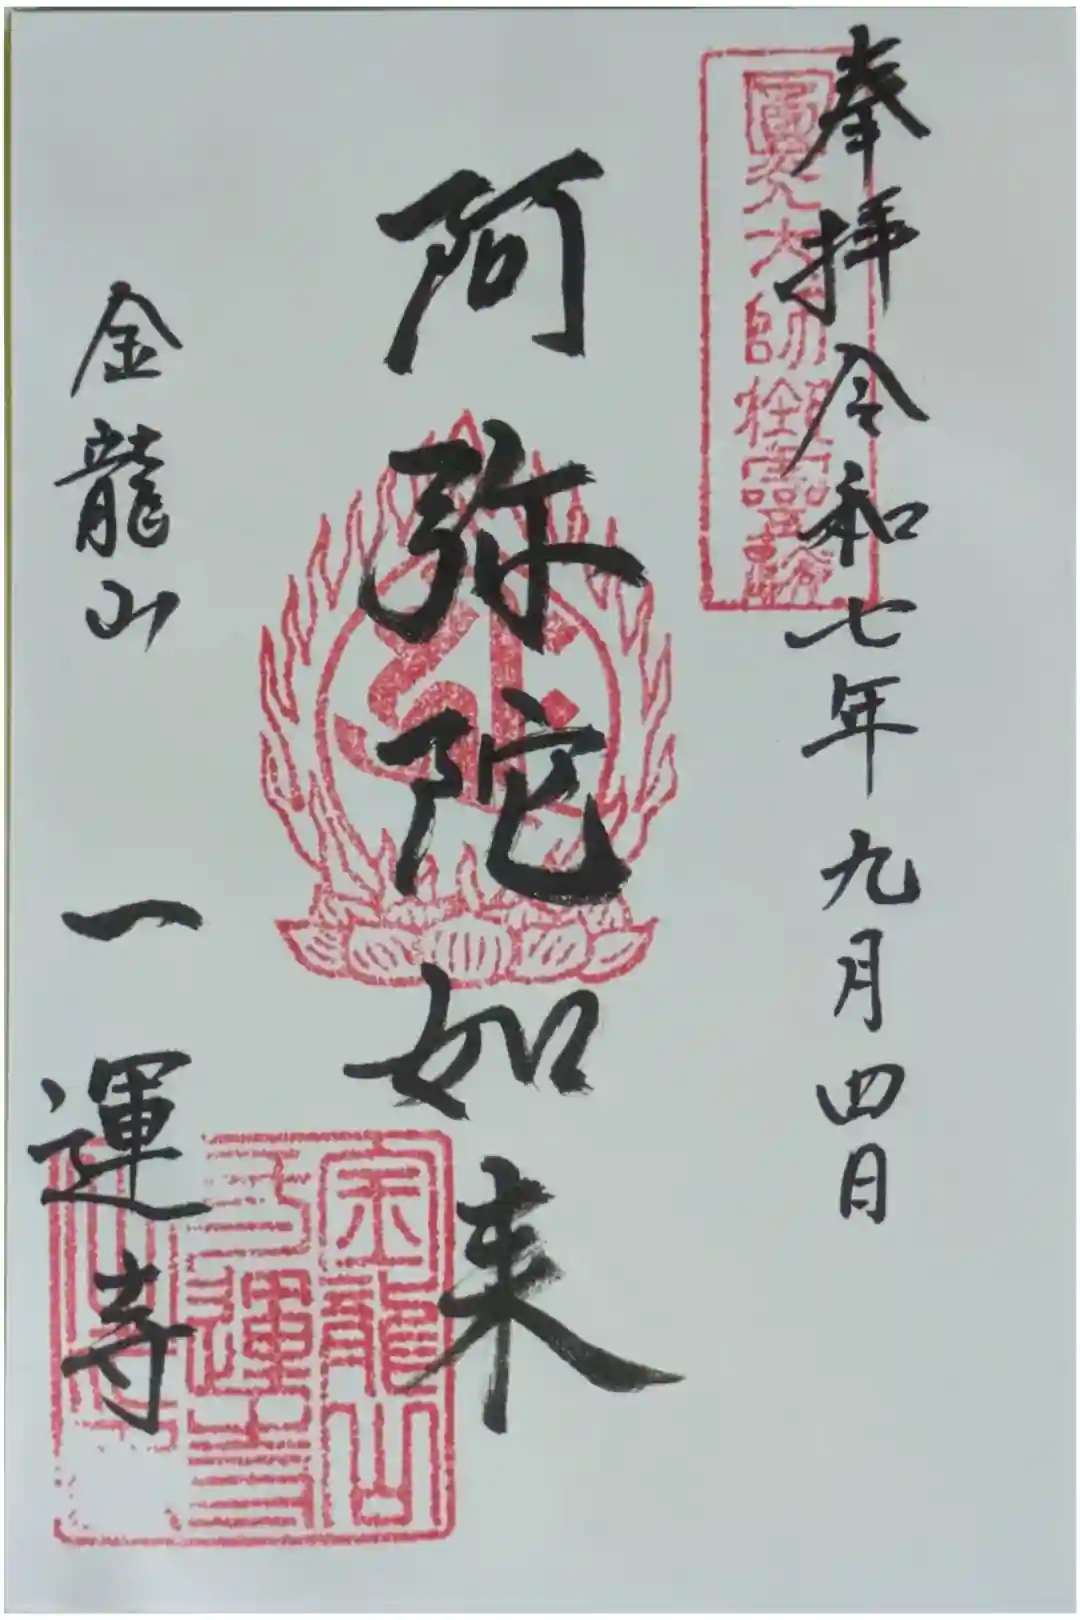 奉拝 令和七年九月四日
圓光大師
阿弥陀如来
金龍山
一運寺
金龍山
一運寺